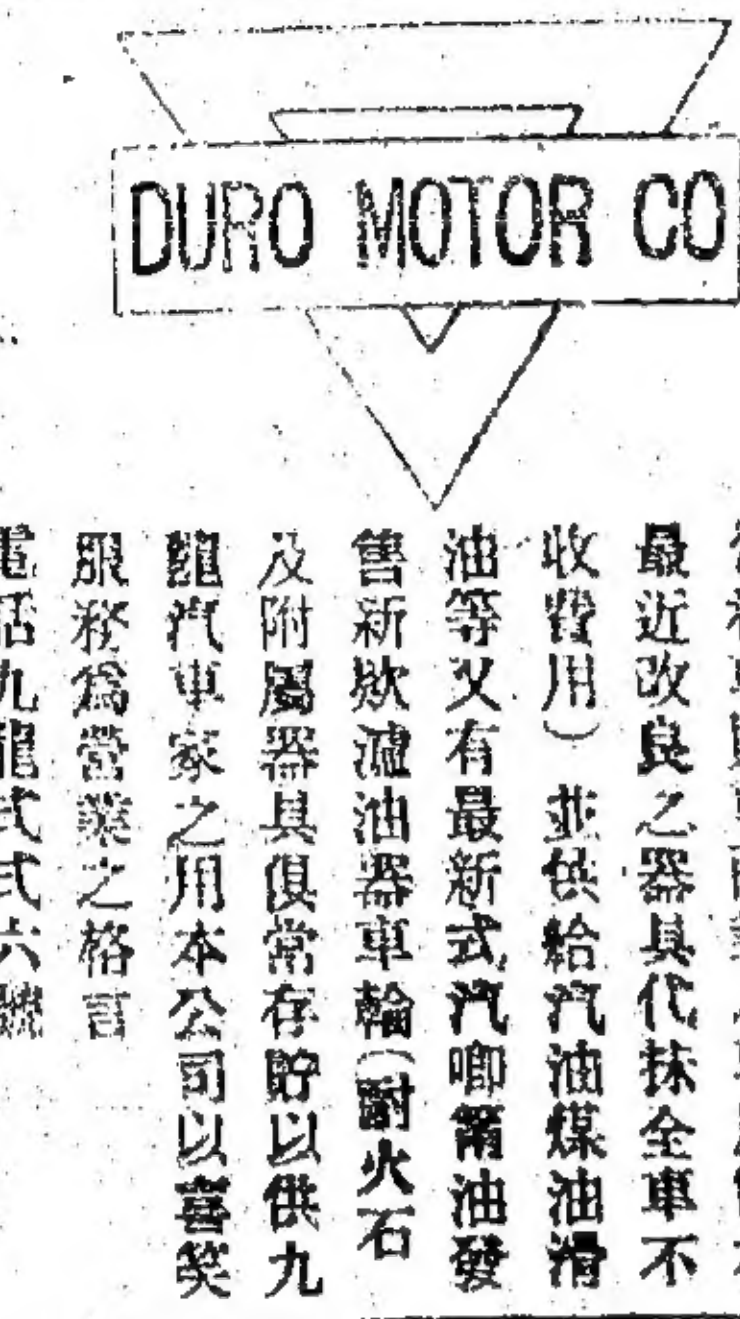 DURO MOTOR CO
最近改良之器具代抹全車不
收費用）並供給汽油煤油滑
油等又有最新式汽唧筩油發
售新欵濾油器車輪（耐火石
及附屬器具俱常存貯以供九
龍汽車家之用本公司以喜笑
服務爲營業之格言
電話九龍式式六號